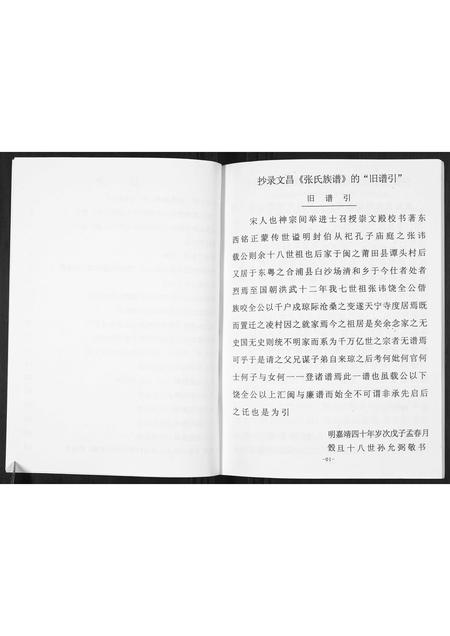 抄录文昌《张氏族谱》的“旧谱引”
旧谱引
宋人也神宗间举进士召授崇文殿校书著东
西铭正蒙传世谥明封伯从祀孔子庙庭之张讳
载公则余十八世祖也后家于闽之莆田县谭头村后
又居于东粤之合浦县白沙场清和乡于今仕者处者
烈焉至国朝洪武十二年我七世祖张讳饶全公偕
族咬全公以千户戍琼际沧桑之变遂天宁寺度居焉既
而置迁之凌村因之就家焉今之祖居是矣余念家之无
史国无史则统不明家而系为千万亿世之宗者无谱焉
可乎于是请之父兄谋子弟自来琼之后考何妣何官何
士何子与女何一一登诸谱焉此一谱也虽载公以下
饶全公以上汇闽与廉谱而始全不可谓非承先启后
之迁也是为引
明嘉靖四十年岁次戊子孟春月
毂旦十八世孙允弼敬书
-01-